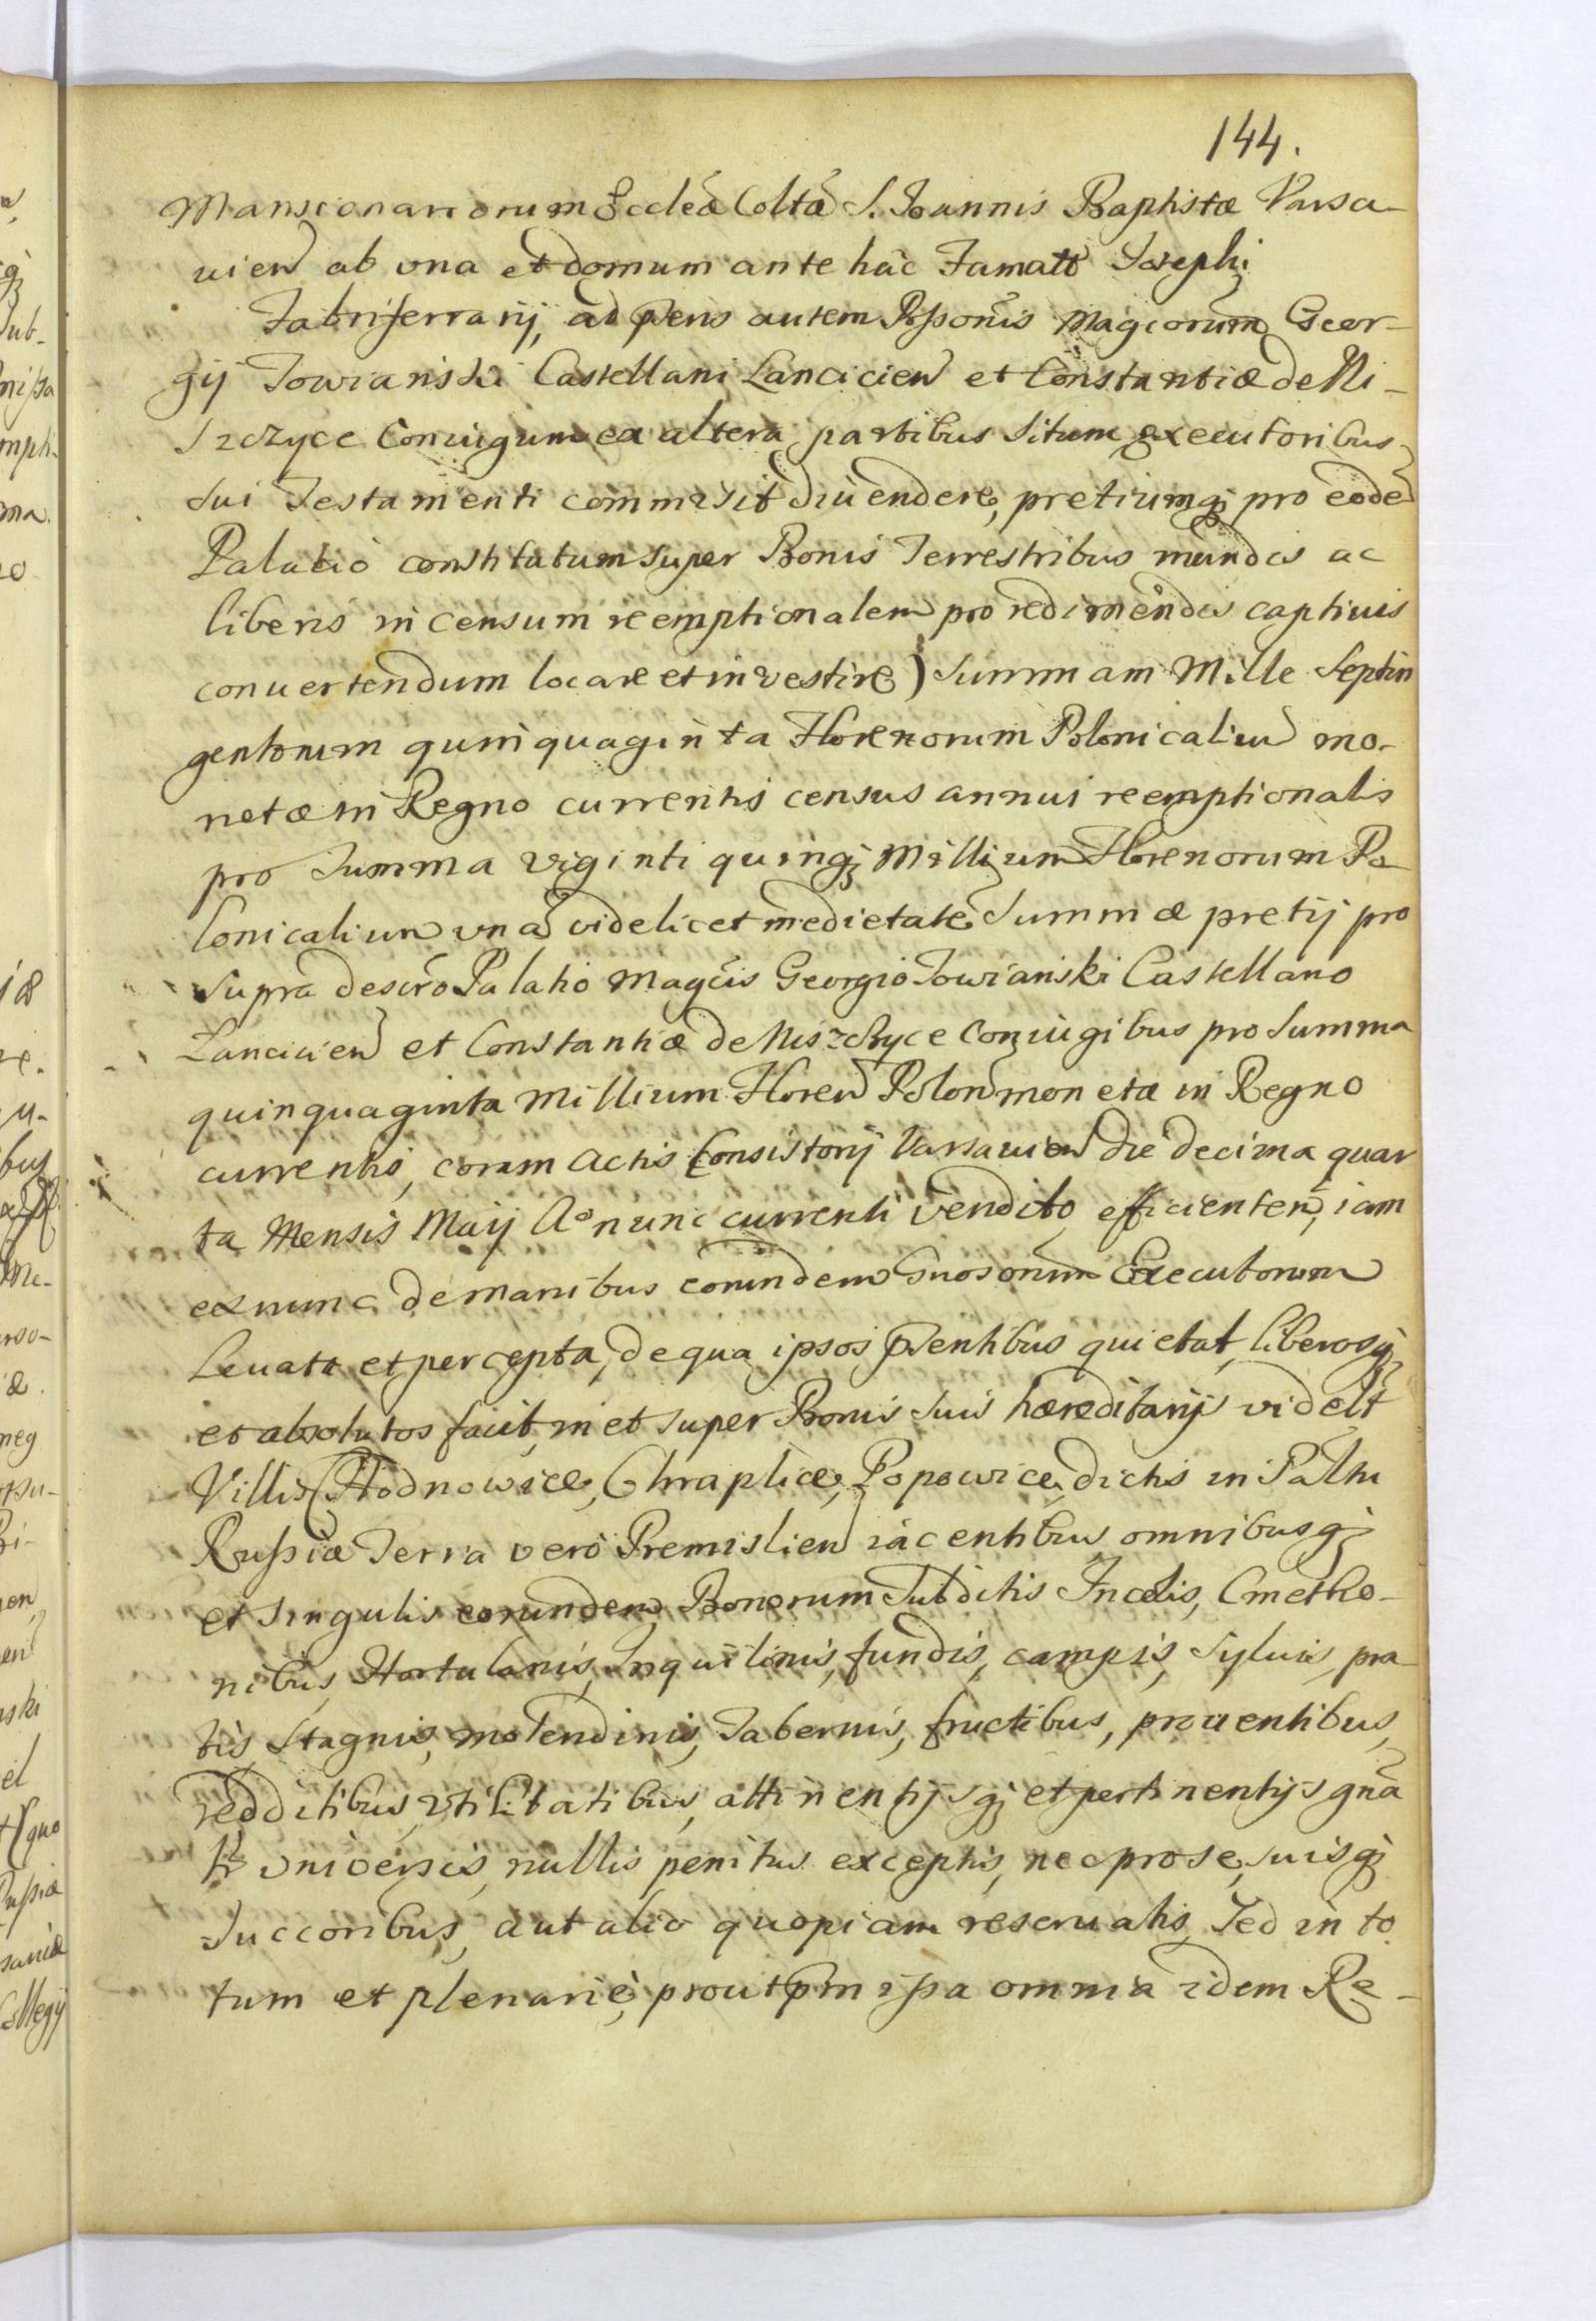 144.
Mansionariorum Ecclæ Coltæ S. Joannis Baptistæ Varsa-
uien ab vna et domum ante hác Famati Josephi
Fabriferrarij, ad pñs autem Poßonis Magcorum Geor-
gij Towianski Castellani Lancicien et Constantiæ de Ni-
szczyce Coniugum ex altera partibus sitam executoribus
sui Testamenti commisit diuendere, pretiumq; pro eodē
Palatio constitutum super Bonis Terrestribus mundis ac
liberis in censum reemptionalem pro redimendis captiuis
conuertendum locare et investire) Summam Mille Septin
gentorum quinquaginta Florenorum Polonicaliū mo-
netæ in Regno currentis census annui reemptionalis
pro Summa viginti quinq; Millium Florenorum Po
lonicalium vna videlicet medietate Summæ pretij pro
supra descrõ Palatio Magcis Georgio Towianski Castellano
Lancicien et Constantiæ de Niszczyce Coniugibus pro Summa
quinquaginta Millium Floren Polon monetæ in Regno
currentis, coram Actis Consistorij Varsauien die decima quar
ta Mensis Maij Aº nunc currenti vendito efficienten, iam
ex nunc de manibus eorundem suosorum Executorum
Leuata et percepta, de qua ipsos pñentibus quietat, liberosq;
et absolutos facit, in et super Bonis suis hæreditarijs videlt
Villis Hodnowice, Chraplice, Popowice, dictis in Palttu
Rußiæ Terra verò Premislien iacentibus omnibusq;
et singulis eorundem Bonorum Subditis Incolis, Cmetho-
nibus, Hortulanis, Inquilinis, fundis, campis, syluis, pra
tis, stagnis, molendinis, Tabernis, fructibus, prouentibus,
redditibus, vtilitatibus, attinentijsq; et pertinentijs gñã
lr vniversis, nullis penitus exceptis, nec pro se, suisq;
succoribus, aut alio quopiam reseruatis, Sed in to
tum et plenariè, prout pmißa omnia idem Re-